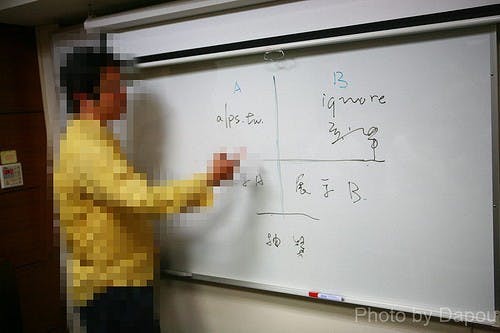 A
B
alps.tw.
ignore
A
展示 B.
抽獎
Photo by Dapou